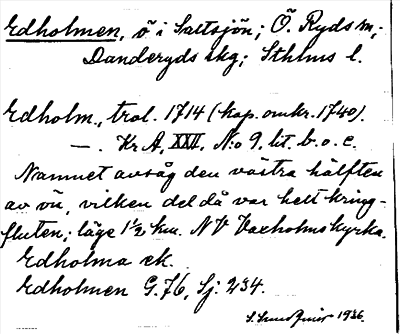 Edholmen, ö i Saltsjön; Ö. Ryds sn;
Danderyds skg; Sthlms l.
Edholm., trol. 1714 (kop. omkr. 1740).
—. Kr A, XXII, N:o 9, lit. b. o. c.
Namnet avsåg den västra hälften
av ön, vilken del då var helt kring-
fluten; läge 1 1/2 km. NV Vaxholms kyrka.
Edholma ek.
Edholmen G. 76, Sj: 234.
1936.